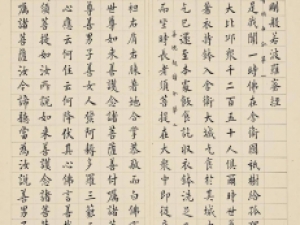 剛般若波羅蜜經
是我聞一時佛在舍衛國祇樹給孤
大比丘眾千二百五十人俱爾時世
著衣持鉢入舍衛大城乞食於其城
乞已還至本處飯食訖收衣鉢洗足
善現起請分第二
坐時長老須菩提在大眾中即從
袒右肩右膝著地合掌恭敬而白佛
世尊如來善護念諸菩薩善付囑
尊善男子善女人發阿耨多羅三藐
心應云何住云何降伏其心佛言善
須菩提如汝所說如來善護念諸
諸菩薩汝今諦聽當為汝說善男